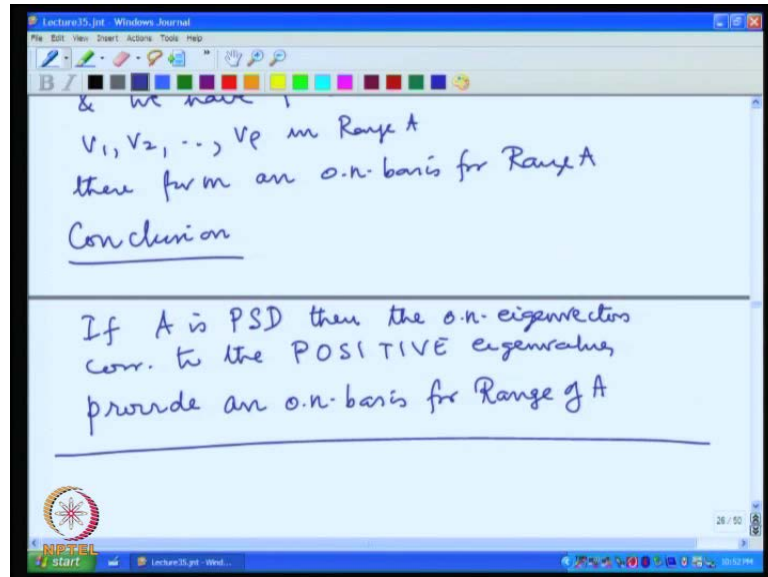 Lecture35.jnt - Windows Journal
File Edit View Insert Actions Tools Help
B I
& we have
v1, v2, ..., vρ in Range A
these form an o.n. basis for Range A
Conclusion
If A is PSD then the o.n. eigenvectors
corr. to the POSITIVE eigenvalues
provide an o.n. basis for Range of A
26 / 50
NPTEL
start Lecture35.jnt - Wind... 10:52 PM